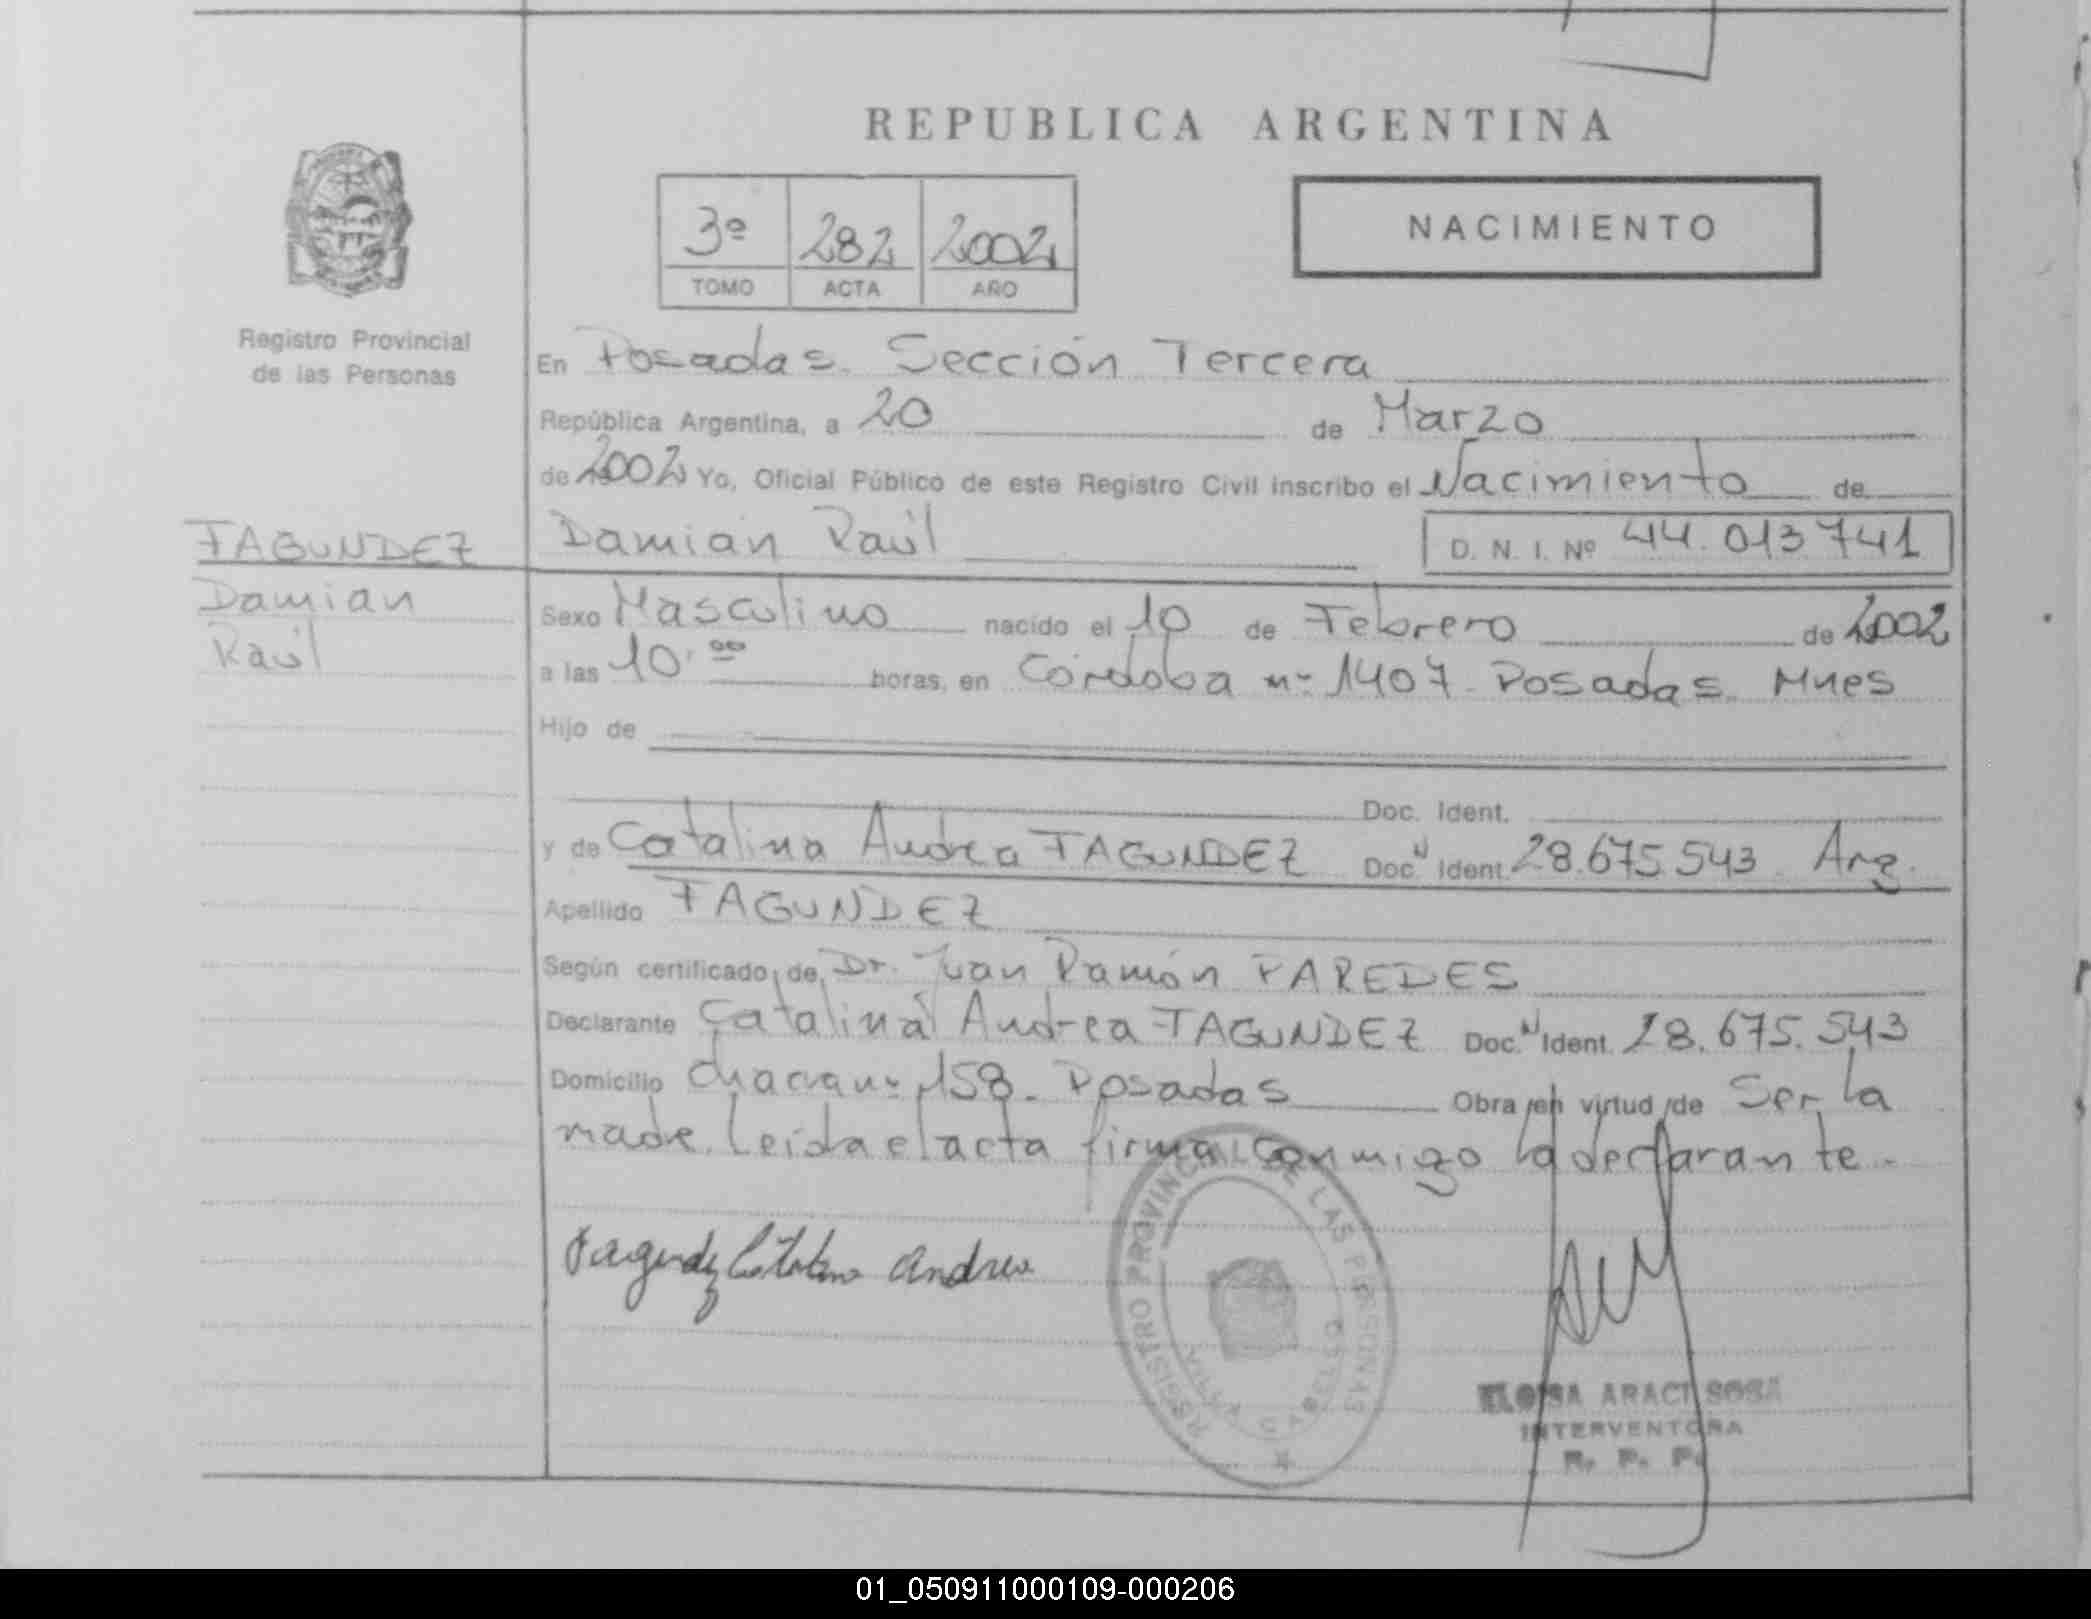 REPUBLICA ARGENTINA
3º 282 2002
TOMO ACTA AÑO
NACIMIENTO
Registro Provincial
de las Personas
En Posadas. Sección Tercera
República Argentina, a 20 de Marzo
de 2002 Yo, Oficial Público de este Registro Civil inscribo el Nacimiento de
FAGUNDEZ Damian Raúl D. N. I. Nº 44.013.741
Damian
Raúl
Sexo Masculino nacido el 10 de Febrero de 2002
a las 10.00 horas, en Córdoba nº 1407. Posadas. Mnes
Hijo de
Doc. Ident.
y de Catalina Andrea FAGUNDEZ Doc. N Ident. 28.675.543 Arg.
Apellido FAGUNDEZ
Según certificado de Dr. Juan Ramón PAREDES
Declarante Catalina Andrea FAGUNDEZ Doc. N Ident. 28.675.543
Domicilio chacra nº 158. Posadas Obra en virtud de Ser la
madre. Leída el acta firma conmigo la declarante.
Fagundez Catalina Andrea
REGISTRO PROVINCIAL DE LAS PERSONAS
VILLA CABELLO
ELOISA ARACI SOSA
INTERVENTORA
R. P. P.
01_050911000109-000206